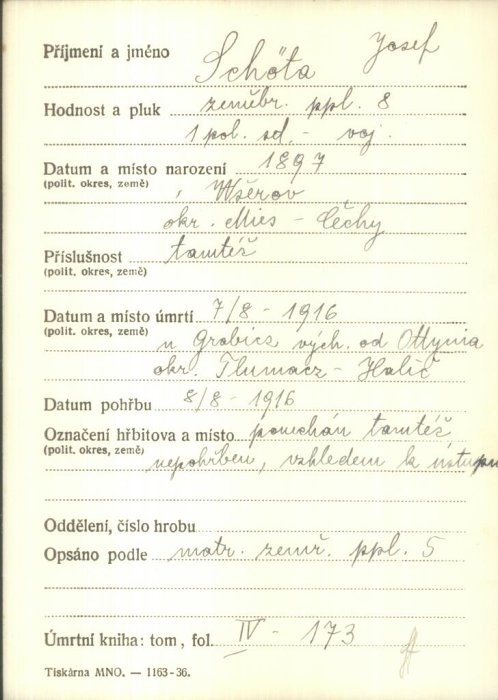 Příjmení a jméno Schöta Josef
Hodnost a pluk zeměbr. ppl. 8
1 pol. sd. - voj.
Datum a místo narození 1897
(polit. okres, země) Wšerov
okr. Mies - Čechy
Příslušnost tamtéž
(polit. okres, země)
Datum a místo úmrtí 7/8 - 1916
(polit. okres, země) u Grabicz vých. od Ottynia
okr. Tlumacz - Halič
Datum pohřbu 8/8 - 1916
Označení hřbitova a místo ponechán tamtéž
(polit. okres, země) nepohřben, vzhledem k ústupu
Oddělení, číslo hrobu
Opsáno podle matr. zemř. ppl. 5
Úmrtní kniha: tom, fol. IV - 173
Tiskárna MNO. — 1163-36.